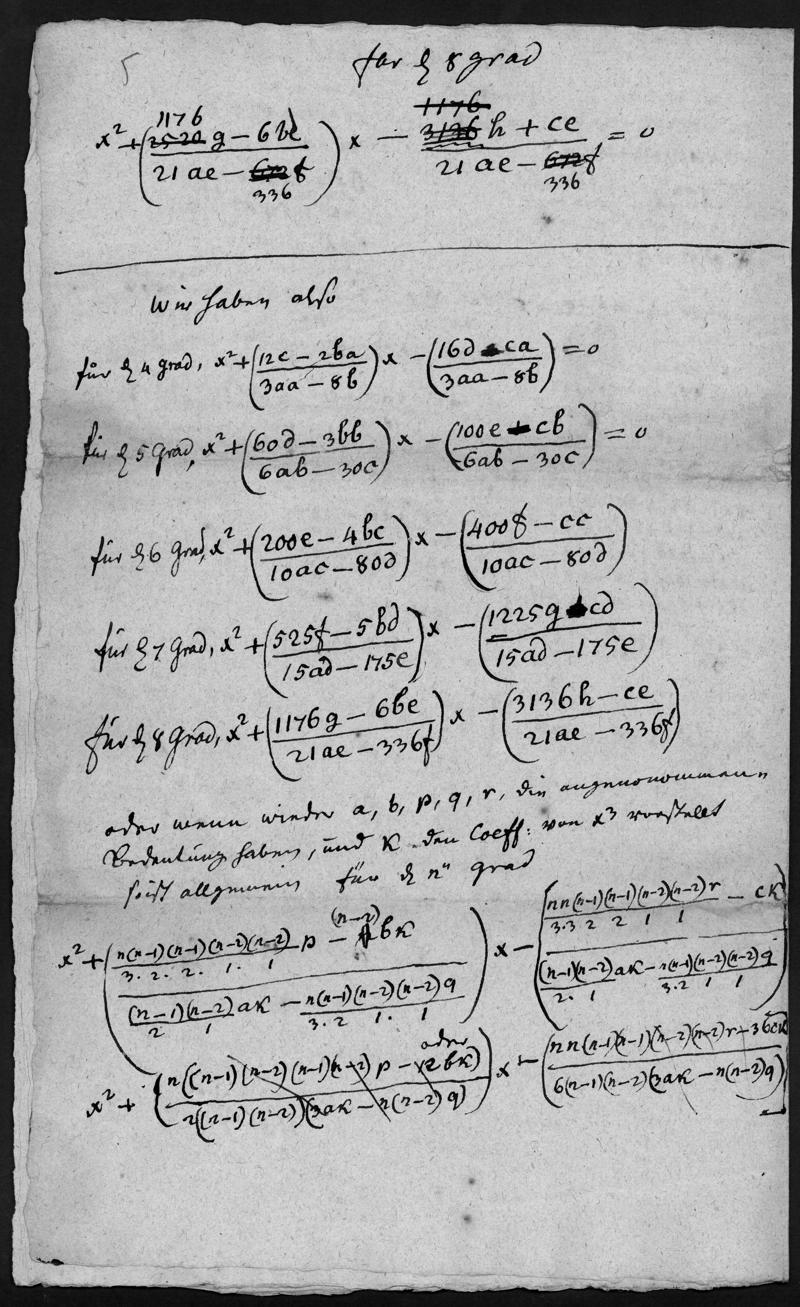 5
für d 8 grad
x² + ( 1176 g − 6be / 21 ae − 336 f ) x − h + ce / 21 ae − 336 f = 0
Wir haben also
für d 4 grad, x² + ( 12c − 2ba / 3aa − 8b ) x − ( 16d ca / 3aa − 8b ) = 0
für d 5 grad, x² + ( 60d − 3bb / 6ab − 30c ) x − ( 100e − cb / 6ab − 30c ) = 0
für d 6 grad, x² + ( 200e − 4bc / 10ac − 80d ) x − ( 400f − cc / 10ac − 80d )
für d 7 grad, x² + ( 525f − 5bd / 15ad − 175e ) x − ( 1225g cd / 15ad − 175e )
für d 8 grad, x² + ( 1176g − 6be / 21ae − 336f ) x − ( 3136h − ce / 21ae − 336f )
oder wenn wieder a, b, p, q, r, die angenommenen
Bedeutung haben, und K den Coeff: von x³ vorstellt
so ist allgemein für d n grad
x² + ( n(n−1)(n−1)(n−2)(n−2) / 3. 2. 2. 1. 1 p − (n−2) bK / (n−1)(n−2) / 2 1 aK − n(n−1)(n−2)(n−2) / 3. 2 1. 1 q ) x − ( nn(n−1)(n−1)(n−2)(n−2) / 3.3 2 2 1 1 r − cK / (n−1)(n−2) / 2. 1 aK − n(n−1)(n−2)(n−2) / 3.2 1 1 q )
oder
x² + ( n((n−1)(n−2)(n−1)(n−2) p − 2bK) / 2((n−1)(n−2))(3aK − n(n−2)q) ) x − ( nn(n−1)(n−1)(n−2)(n−2) r − 36cK / 6(n−1)(n−2)(3aK − n(n−2)q) )